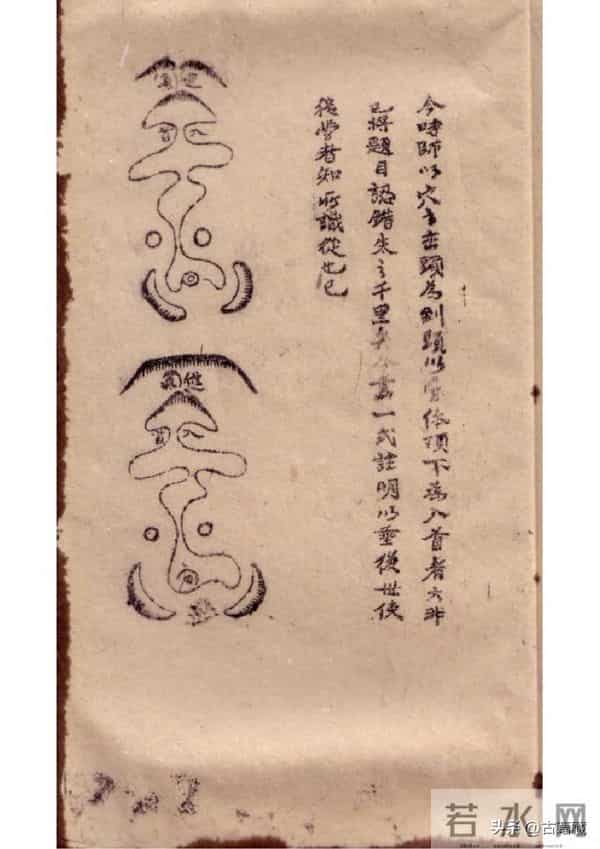 今時師以穴巒頭為到頭以体頂下為入首者大非
已將題目認錯失之千里矣今畵一式註明以垂後世使
後學者知所識從也已
入首
入首
若水网
头条 @古